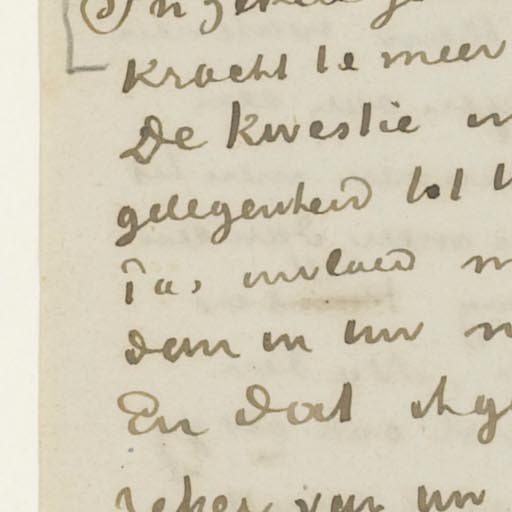 In zekere
kracht te meer
De kwestie in
gelegenheid tot
Pa, invloed
dan in uw
En dat
zeker van uw